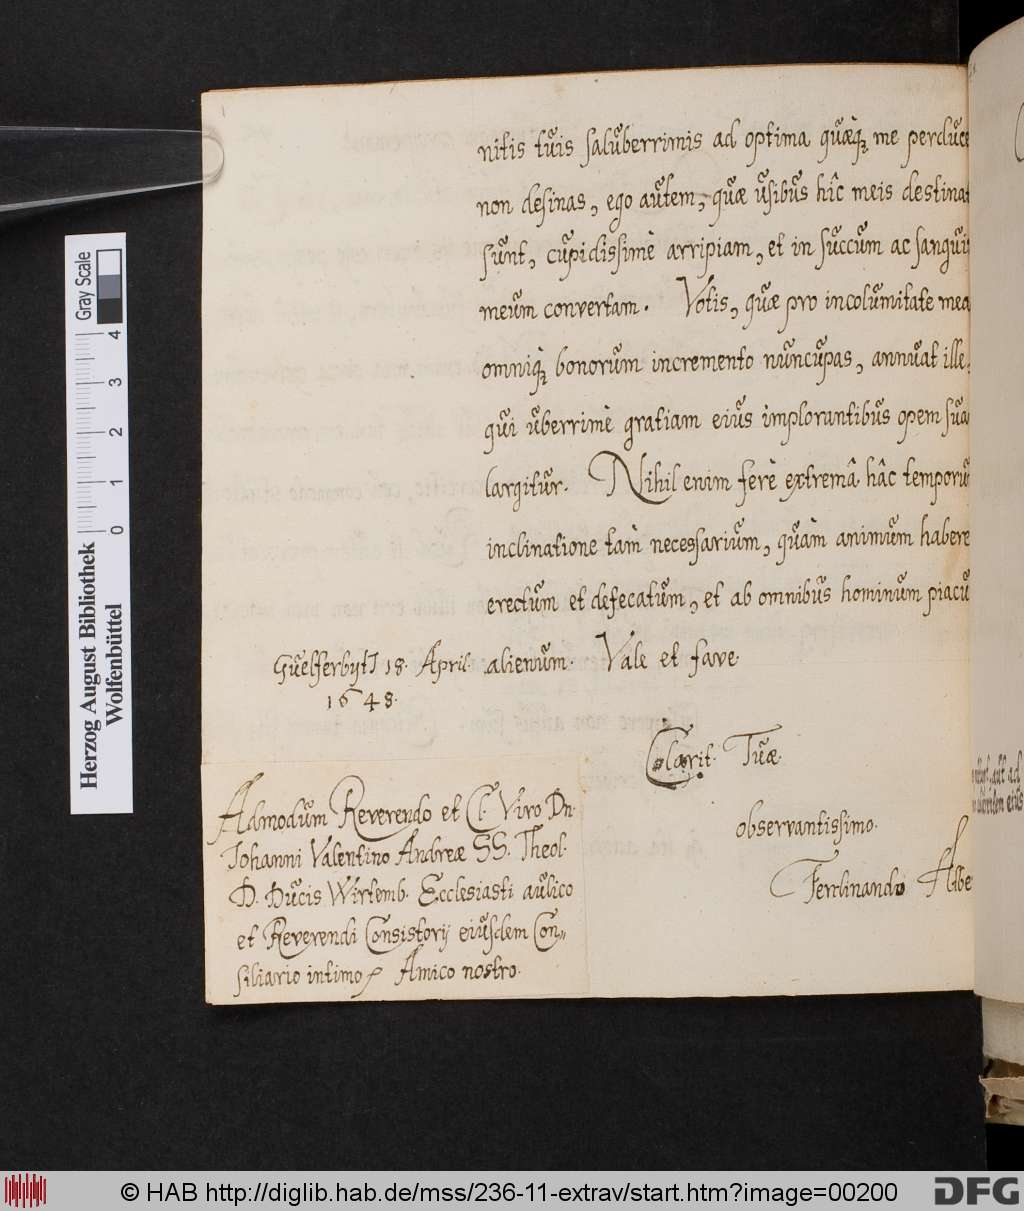 nitis tuis saluberrimis ad optima quæq; me perduce
non desinas, ego autem, quæ usibus hîc meis destinat
sunt, cupidissimè arripiam, et in succum ac sangui
meum convertam. Votis, quæ pro incolumitate mea
omniq; bonorum incremento nuncupas, annuat ille,
qui uberrimè gratiam eius implorantibus opem sua
largitur. Nihil enim ferè extremâ hâc temporu
inclinatione tàm necessarium, quàm animum habere
erectum et defecatum, et ab omnibus hominum piacu
Guelferbyti 18. April. alienum. Vale et fave.
1648.
Clarit. Tuæ.
observantissimo.
Ferdinando Albe
Admodum Reverendo et Cl. Viro Dn.
Johanni Valentino Andreæ SS. Theol.
D. Ducis Wirtemb. Ecclesiasti aulico
et Reverendi Consistorij eiusdem Con„
siliario intimo Amico nostro.
Gray Scale
0 1 2 3 4
Herzog August Bibliothek
Wolfenbüttel
© HAB http://diglib.hab.de/mss/236-11-extrav/start.htm?image=00200
DFG